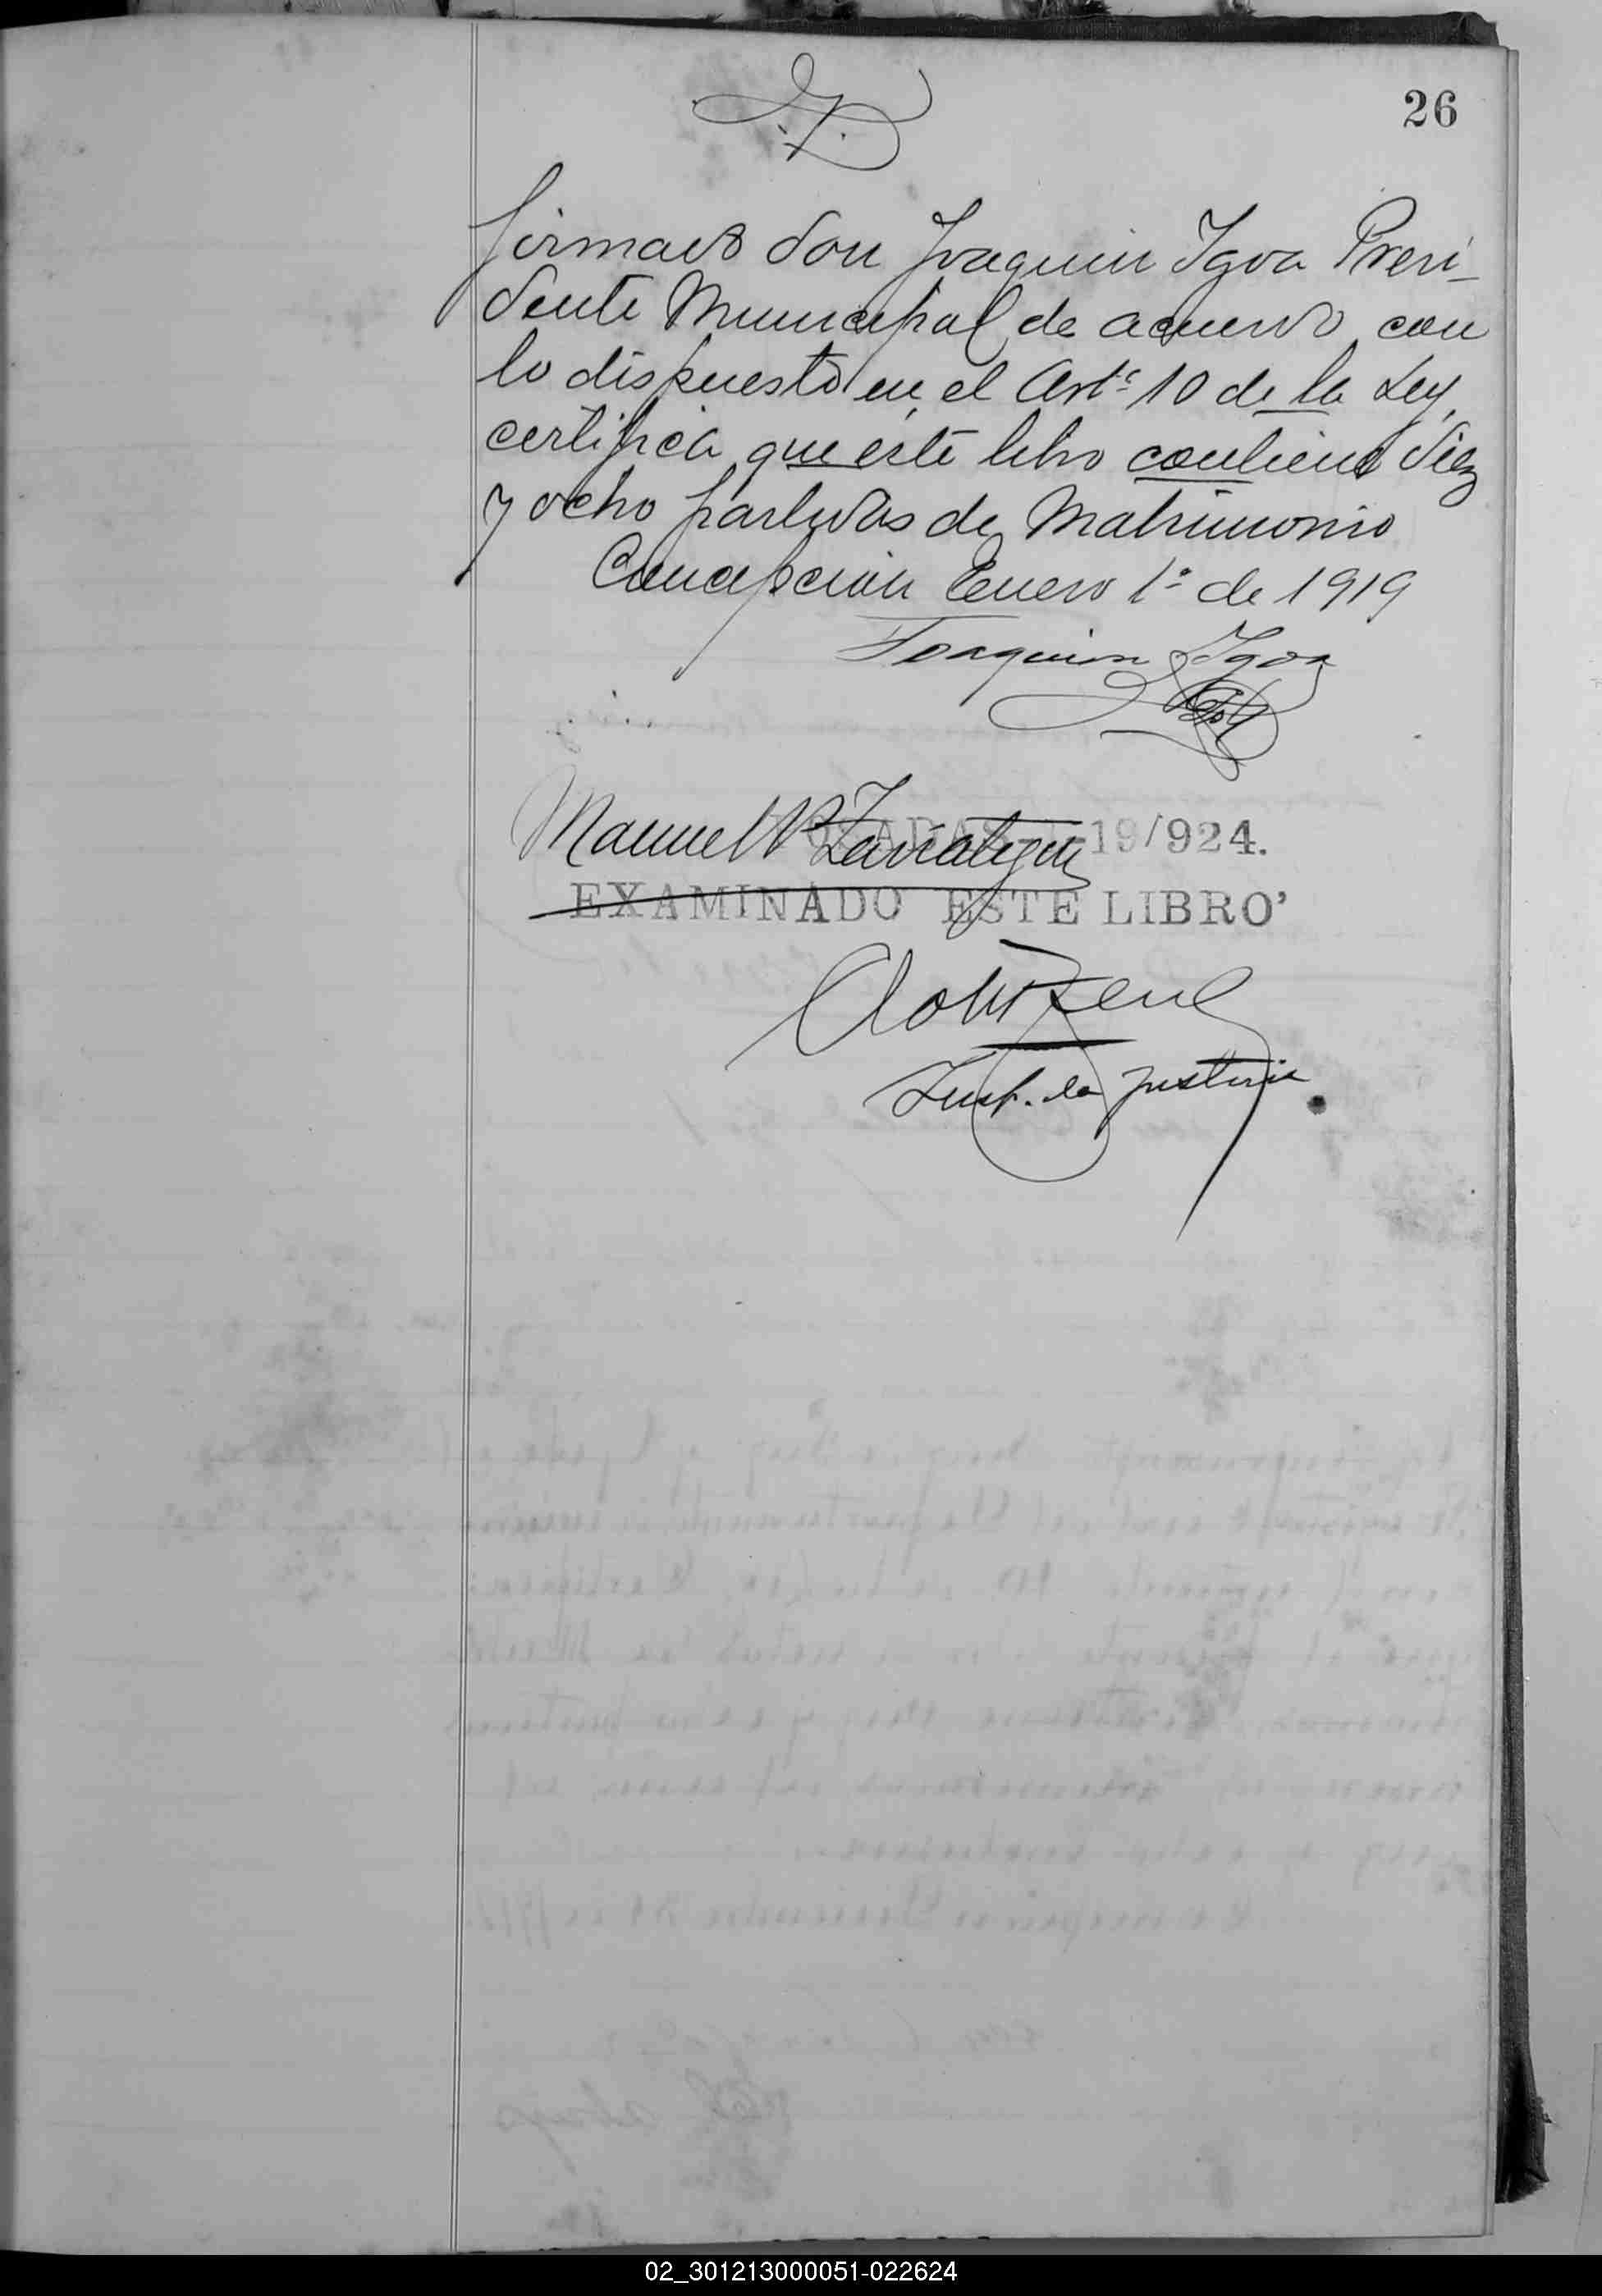 26
firmado don Joaquin Igoa Presi-
dente Municipal de acuerdo con
lo dispuesto en el Artº 10 de la Ley,
certifica que este libro contiene diez
y ocho partidas de Matrimonio
Concepcion Enero 1º de 1919
Joaquin Igoa
Manuel
POSADAS 19/924.
EXAMINADO ESTE LIBRO
Insp. de Justicia
02_301213000051-022624